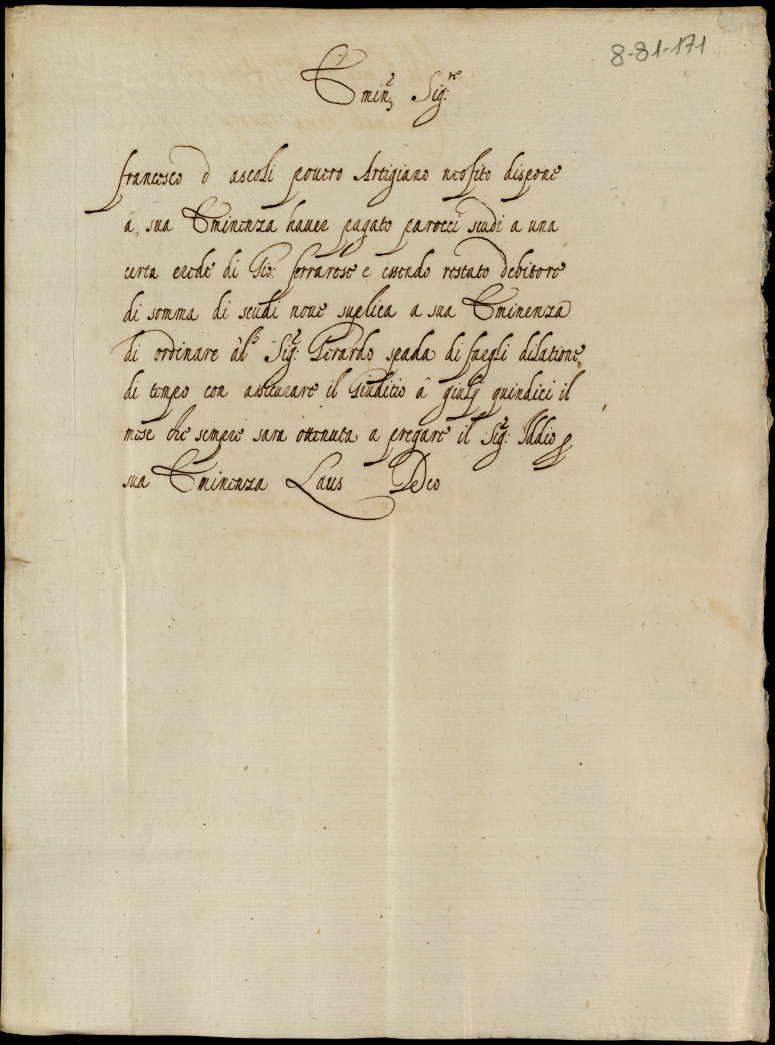 8-81-171
Emin.e Sig.re
francesco d ascoli povero Artigiano neofito dispone
à sua Eminenza haver pagato parecci scudi a una
certa erede di Gio: ferrarese e essendo restato debitore
di somma di scudi nove suplica a sua Eminenza
di ordinare àl Sig.r Gerardo spada di fargli dilatione
di tempo con assicurare il Giuditio à giulij quindici il
mese che sempre sara ottenuta a pregare il Sig.r Iddio p
sua Eminenza Laus Deo